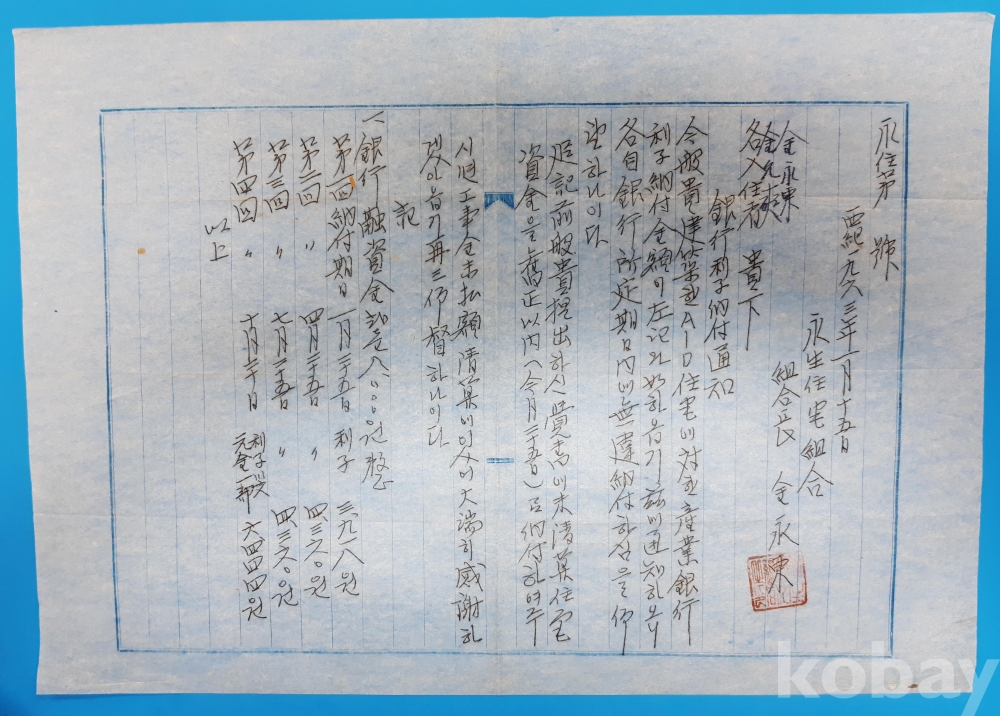 永住第 號
西紀一九六三年一月十五日
永生住宅組合
組合長 金永東
金永東
各入住者 貴下
銀行利子納付通知
今般貴建築한AID住宅에対한産業銀行
利子納付金額이左記와如한음기玆에通知하오니
各自銀行所定期日內에無違納付하심을仰
望하나이다
追記前般貴提出하신覺書에未清算住宅
資金을舊正以內(今月二十五日)로納付하여주
시면工事金未払額清算에있어大端히感謝하
겠아옵기再三仰督하나이다
記
一 銀行融資金 八〇,〇〇〇원整
第一回納付期日 一月二十五日 利子 三九一八원
第二回 〃 四月二十五日 〃 四三六〇원
第三回 〃 七月二十五日 〃 四三六〇원
第四回 〃 十月二十日 利子及元金一部 六四四四원
以上
kobay